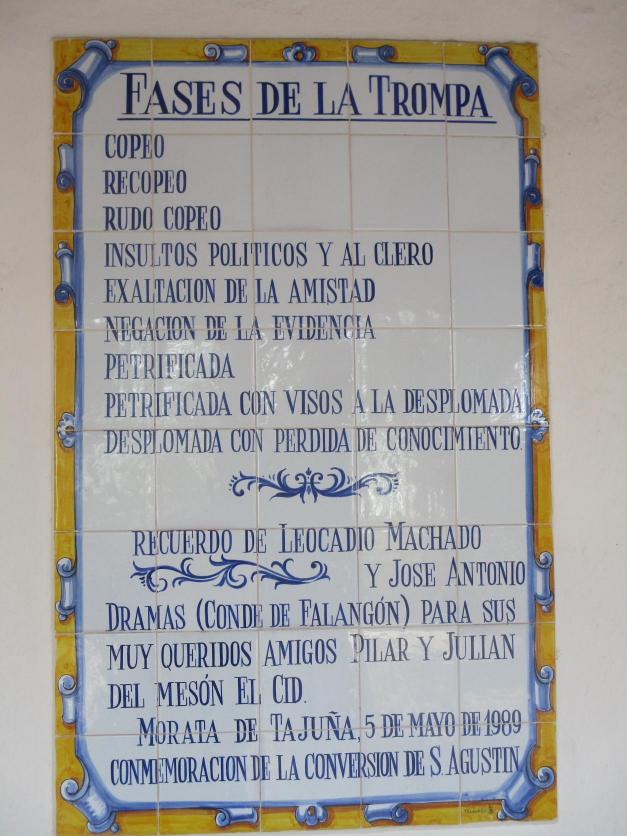 FASES DE LA TROMPA
COPEO
RECOPEO
RUDO COPEO
INSULTOS POLITICOS Y AL CLERO
EXALTACION DE LA AMISTAD
NEGACION DE LA EVIDENCIA
PETRIFICADA
PETRIFICADA CON VISOS A LA DESPLOMADA
DESPLOMADA CON PERDIDA DE CONOCIMIENTO.
RECUERDO DE LEOCADIO MACHADO
Y JOSE ANTONIO
DRAMAS (CONDE DE FALANGÓN) PARA SUS
MUY QUERIDOS AMIGOS PILAR Y JULIAN
DEL MESÓN EL CID.
MORATA DE TAJUÑA, 5 DE MAYO DE 1989
CONMEMORACION DE LA CONVERSION DE S. AGUSTIN